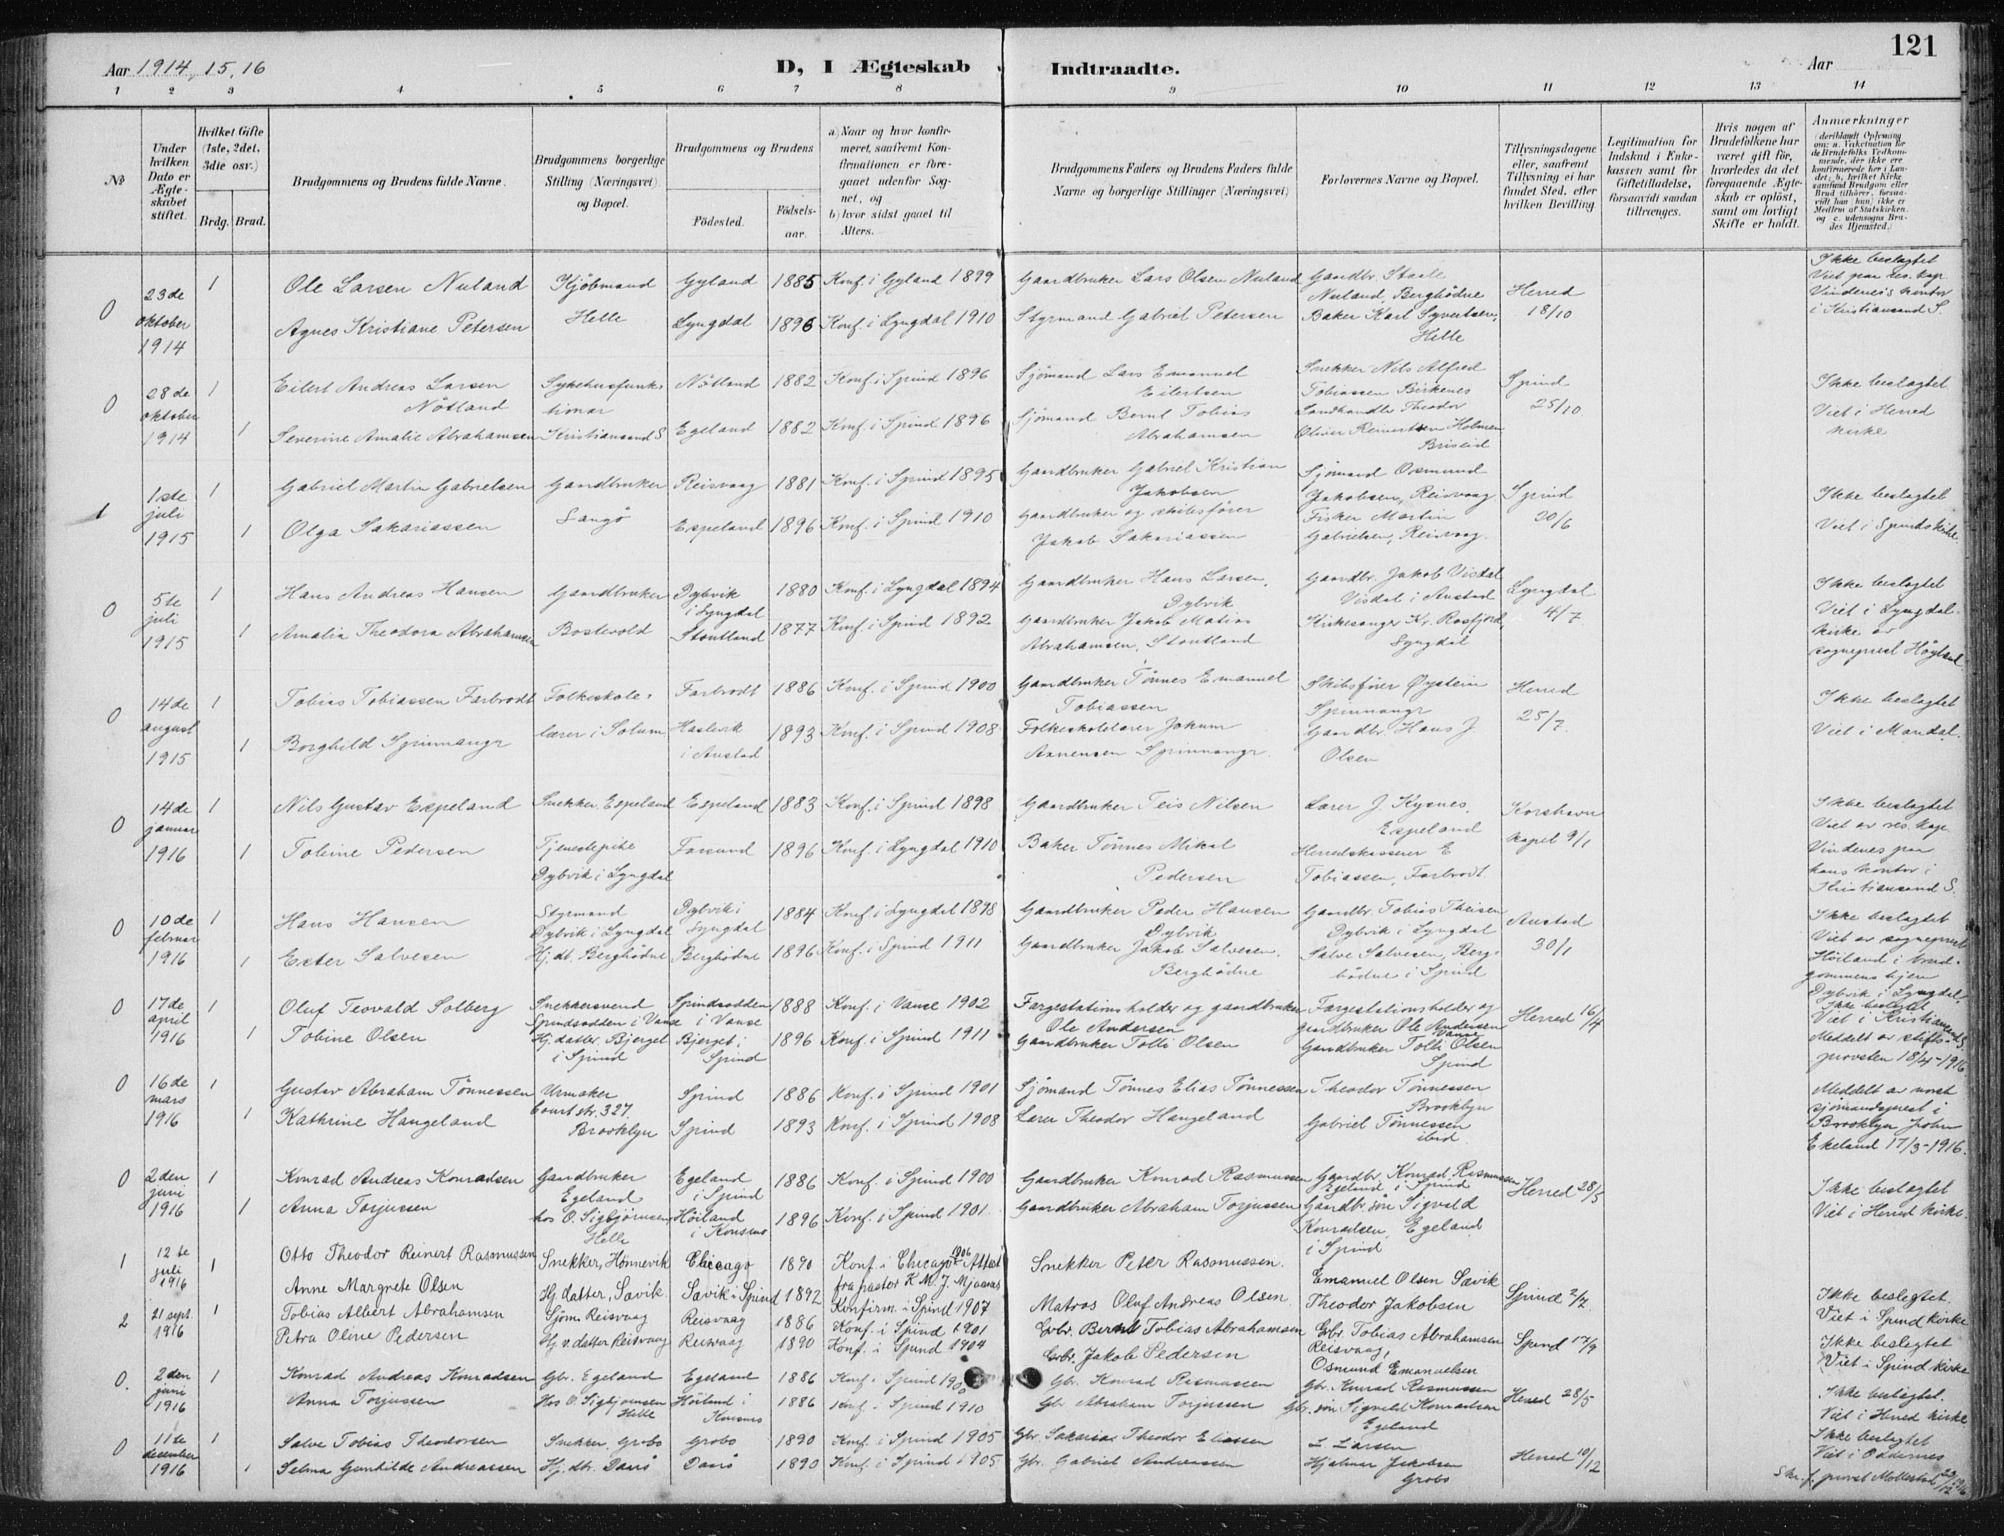 121
Aar 1914, 15, 16
D, I Ægteskab Indtraadte.
Aar
1 2 3 4 5 6 7 8 9 10 11 12 13 14
No
Under hvilken Dato er Ægteskabet stiftet.
Hvilket Gifte (1ste, 2det, 3die osv.)
Brdg. Brud.
Brudgommens og Brudens fulde Navne.
Brudgommens borgerlige Stilling (Næringsvei) og Bopæl.
Brudgommens og Brudens
Födested.
Födselsaar.
a) Naar og hvor konfirmeret, saafremt Konfirmationen er foregaaet udenfor Sognet, og
b) hvor sidst gaaet til Alters.
Brudgommens Faders og Brudens Faders fulde Navne og borgerlige Stillinger (Næringsvei)
Forlovernes Navne og Bopæl.
Tillysningsdagene eller, saafremt Tillysning ei har fundet Sted, efter hvilken Bevilling
Legitimation for Indskud i Enkekassen samt for Giftetilladelse, forsaavidt saadan tiltrænges.
Hvis nogen af Brudefolkene har været gift för, hvorledes da det foregaaende Ægteskab er oplöst, samt om lovligt Skifte er holdt.
Anmærkninger
(deriblandt Oplysning om: a. Vaccination for de Brudefolks Vedkommende, der ikke ere konfirmerede her i Landet; b. hvilket Kirkesamfund Brudgom eller Brud tilhörer, forsaavidt han (hun) ikke er Medlem af Statskirken, og c. udensogns Brudes Hjemsted.)
0 23de oktober 1914 1 Ole Larsen Nuland Kjöbmand Helle Gyland 1885 Konf. i Gyland 1899 Gaardbruker Lars Olsen Nuland Gaardbr. Staale Nuland, Berghödne Herred 18/10 Ikke beslagtet
Agnes Kristiane Petersen Lyngdal 1896 Konf. i Lyngdal 1910 Styrmand Gabriel Petersen Baker Karl Syvertsen, Helle Viet paa res. kap. Vindenes's kontor i Kristiansand S.
0 28de oktober 1914 1 Eilert Andreas Larsen Nötland Sykehusfunktionær Nötland 1882 Konf. i Spind 1896 Sjömand Lars Emanuel Eilertsen Snekker Nils Alfred Tobiassen Birkenes Spind 25/10 Ikke beslagtet
1 Severine Amalie Abrahamsen Kristiansand S Egeland 1882 Konf. i Spind 1896 Sjömand Bernt Tobias Abrahamsen Landhandler Theodor Oliver Reinertsen Holmen Briseid Viet i Herred kirke
1 1ste juli 1915 1 Gabriel Martin Gabrielsen Gaardbruker Langö Reisvaag 1881 Konf. i Spind 1895 Gaardbruker Gabriel Kristian Jakobsen Sjömand Osmund Jakobsen, Reisvaag Spind 20/6 Ikke beslagtet
1 Olga Sakariassen Espeland 1896 Konf. i Spind 1910 Gaardbruker og skibsförer Jakob Sakariassen Fisker Martin Gabrielsen, Reisvaag. Viet i Spinds kirke.
0 5te juli 1915 1 Hans Andreas Hansen Gaardbruker Dybvik i Lyngdal 1880 Konf. i Lyngdal 1894 Gaardbruker Hans Larsen, Dybvik Gaardbr. Jakob Visdal Visdal i Austad Lyngdal 4/7 Ikke beslagtet
1 Amalia Theodora Abrahamsen Bostevold Stoutland 1877 Konf. i Spind 1892 Gaardbruker Jakob Matias Abrahamsen, Stoutland Kirkesanger Kr. Rosfjord, Lyngdal Viet i Lyngdal kirke av sogneprest Höyland
0 14de august 1915 1 Tobias Tobiassen Farbrodt Folkeskole- Farbrodt 1886 Konf. i Spind 1900 Gaardbruker Tönnes Emanuel Tobiassen Skibsförer Øystein Spinnangr Herred 25/7 Ikke beslagtet
1 Borghild Spinnangr lærer i Solum i Austad 1893 Konf. i Spind 1908 Folkeskolelærer Jokum Annensen Spinnangr. Gaardbr. Hans J. Olsen Viet i Mandal.
0 14de januar 1916 1 Nils Gustav Espeland Snekker, Espeland Espeland 1883 Konf. i Spind 1898 Gaardbruker Teis Nilsen Lærer J. Kysnes, Espeland Korshavn kapel 9/1 Ikke beslagtet
1 Tobine Pedersen Tjenestepike Dybvik i Lyngdal Farsund 1896 Konf. i Lyngdal 1910 Baker Tönnes Mikal Pedersen Herredskasserer E Tobiassen, Farbrodt. Viet av res. kap. Vindenes paa hans kontor i Kristiansand S.
0 10de februar 1916 1 Hans Hansen Styrmand Dybvik i Lyngdal Dybvik i Lyngdal 1884 Konf. i Lyngdal 1898 Gaardbruker Peder Hansen Dybvik Gaardbr. Tobias Theisen Dybvik i Lyngdal Austad 30/1 Ikke beslagtet
1 Ester Salvesen Hj. dt. Berghödne Berghödne 1896 Konf. i Spind 1911 Gaardbruker Jakob Salvesen. Berghödne Salve Salvesen, Berghödne i Spind Viet av sogneprest Höiland i brudgommens hjem Dybvik i Lyngdal.
0 17de april 1916 1 Oluf Teovald Solberg Snekkersvend Spindsodden i Vanse Spindsodden i Vanse 1888 Konf. i Vanse 1902 Færgestationsholder og gaardbruker Ole Andersen Færgestationsholder og gaardbruker Ole Andersen Vanse Herred 16/4 Ikke beslagtet
1 Tobine Olsen Hj. datter. Bjerget i Spind Bjerget i Spind 1896 Konf. i Spind 1911 Gaardbruker Tolli Olsen Gaardbruker Tolli Olsen Spind Viet i Kristiansand S. Meddelt av stiftsprovsten 18/4-1916
0 16de mars 1916 1 Gustav Abraham Tönnessen Urmaker Court str. 327. Brooklyn Spind 1886 Konf. i Spind 1901 Sjömand Tönnes Elias Tönnessen Theodor Tönnessen Brooklyn Meddelt av norsk sjömandsprest i Brooklyn
1 Kathrine Hangeland Spind 1893 Konf. i Spind 1908 Lærer Theodor Hangeland Gabriel Tönnessen ibid. Ekeland 17/3-1916.
0 2den juni 1916 1 Konrad Andreas Konradsen Gaardbruker Egeland Egeland i Spind 1886 Konf. i Spind 1900 Gaardbruker Konrad Rasmussen Gaardbr. Konrad Rasmussen Egeland i Spind Herred 28/5 Ikke beslagtet
1 Anna Torjussen hos O. Sigbjörnsen, Helle Höiland 1896 Konf. i Spind 1901. Gaardbruker Abraham Torjussen Gaardbr. sön Sigvald Konradsen, Egeland i Spind Viet i Herred kirke.
1 12te juli 1916 1 Otto Theodor Reinert Rasmussen Snekker, Hönnevik Chicago 1890 Konf. i Chicago 1906 Attest fra pastor K. M. J. Mjaanes Snekker Peter Rasmussen. Emanuel Olsen Sævik
Anne Margrete Olsen Hj. datter, Sævik Sævik i Spind 1892 Konfirm. i Spind 1907 Matros Oluf Andreas Olsen Theodor Jakobsen Spind 2/7 Ikke beslegtet. Viet i Spind kirke
2 21 sept. 1916 Tobias Albert Abrahamsen Sjöm. Reisvaag Reisvaag 1886 Konf. i Spind 1901 Grbr. Bernt Tobias Abrahamsen Grbr. Tobias Abrahamsen Reisvaag, Spind 17/9 Ikke beslegtet
Petra Oline Pedersen Hj. v. datter Reisvaag Reisvaag 1890 Konf. i Spind 1904 Grbr. Jakob Pedersen Osmund Emanuelsen Viet i Spind kirke
0. 2den juni 1916 1 Konrad Andreas Konradsen Gbr. Egeland Egeland 1886 Konf. i Spind 1900 Gbr. Konrad Rasmussen Gbr. Konrad Rasmussen Herred 28/5 Ikke beslagtet.
Anna Torjussen Hos O. Sigbjörnsen Helle Höiland i 1886 Konf. i Spind 1910 Gbr Abraham Torjussen Gbr. sön Sigvald Konradsen Egeland Viet i Herred kirke.
0 11te desember 1916 1 Salve Tobias Theodorsen Snekker, Grobo Grobo 1890 Konf. i Spind 1905 Gbr. Sakarias Theodor Eliassen L. Larsen Herred 10/12 Ikke beslagtet
1 Selma Gunhilde Andreassen Hj. dtr. Dansö 1890 Konf. i Spind 1905 Gbr. Gabriel Andreassen Hjalmar Jakobsen Grobo Viet i Oddernes